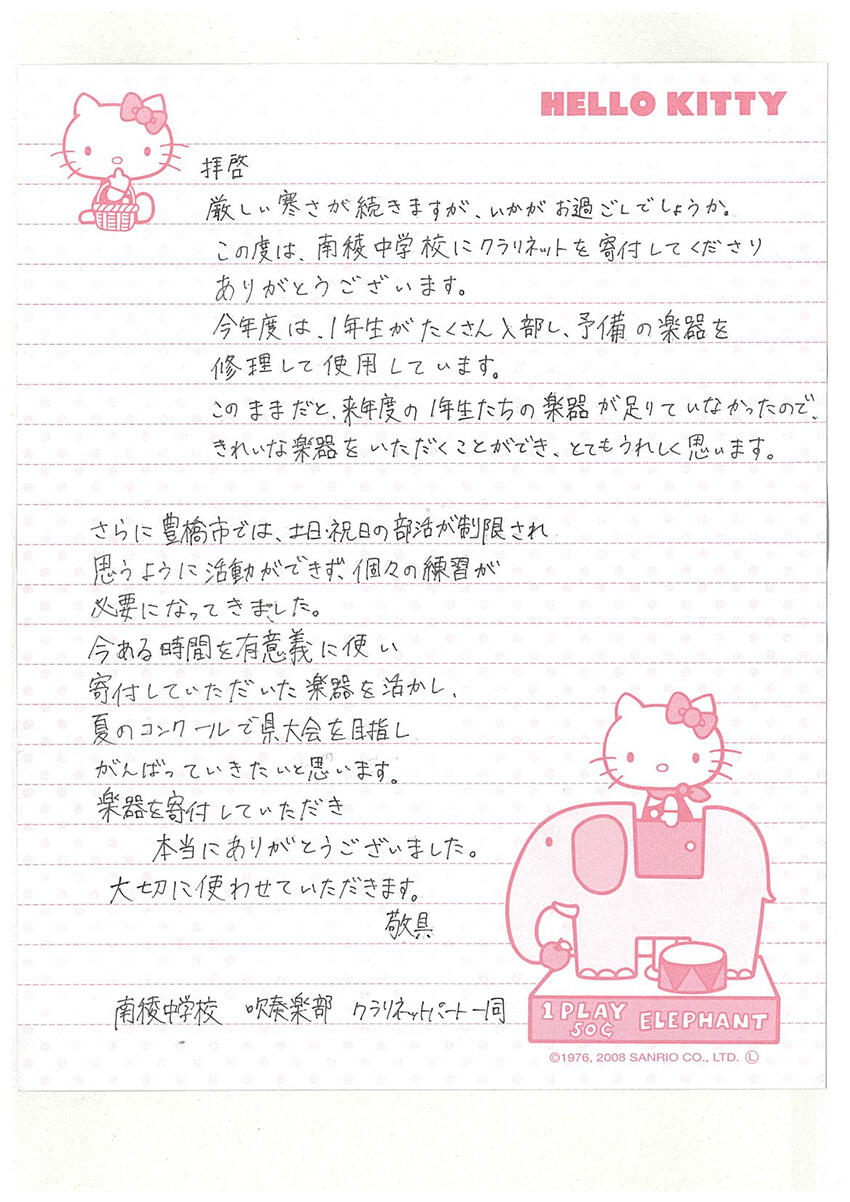 HELLO KITTY
拝啓
厳しい寒さが続きますが、いかがお過ごしでしょうか。
この度は、南稜中学校にクラリネットを寄付してくださり
ありがとうございます。
今年度は、1年生がたくさん入部し、予備の楽器を
修理して使用しています。
このままだと、来年度の1年生たちの楽器が足りていなかったので、
きれいな楽器をいただくことができ、とてもうれしく思います。
さらに豊橋市では、土日・祝日の部活が制限され
思うように活動ができず、個々の練習が
必要になってきました。
今ある時間を有意義に使い
寄付していただいた楽器を活かし、
夏のコンクールで県大会を目指し
がんばっていきたいと思います。
楽器を寄付していただき
本当にありがとうございました。
大切に使わせていただきます。
敬具
南稜中学校 吹奏楽部 クラリネットパート一同
1 PLAY 50¢ ELEPHANT
©1976, 2008 SANRIO CO., LTD. Ⓛ